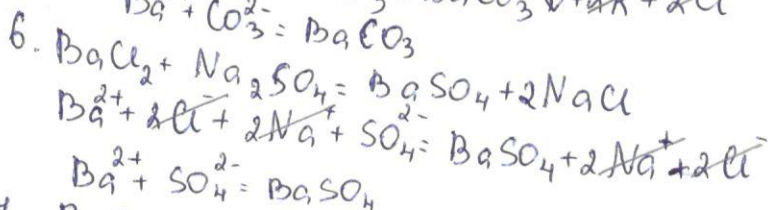 Ba + CO₃²⁻ = BaCO₃
6. BaCl₂ + Na₂SO₄ = BaSO₄ + 2NaCl
Ba²⁺ + 2Cl⁻ + 2Na⁺ + SO₄²⁻ = BaSO₄ + 2Na⁺ + 2Cl⁻
Ba²⁺ + SO₄²⁻ = BaSO₄